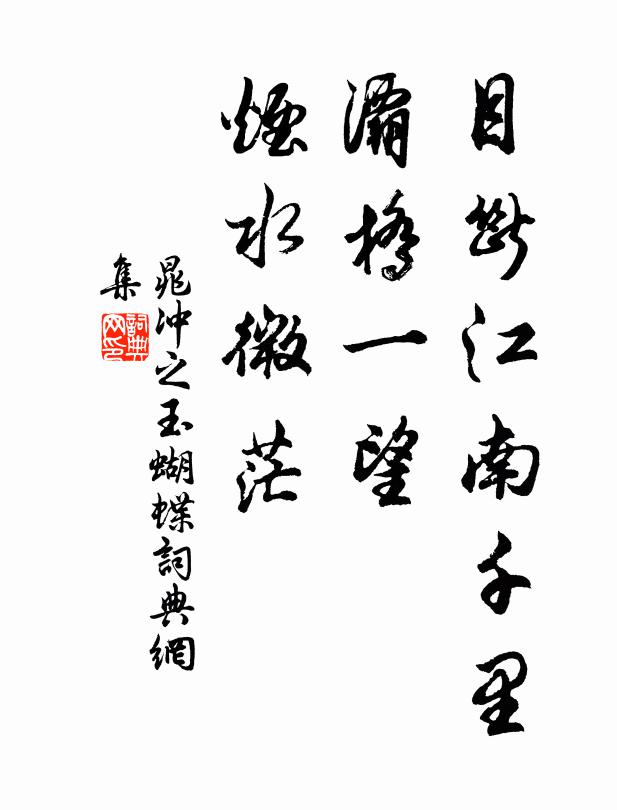 目斷江南千里
灞橋一望
煙水微茫
晁沖之玉蝴蝶詞典網
集
詞典
网印